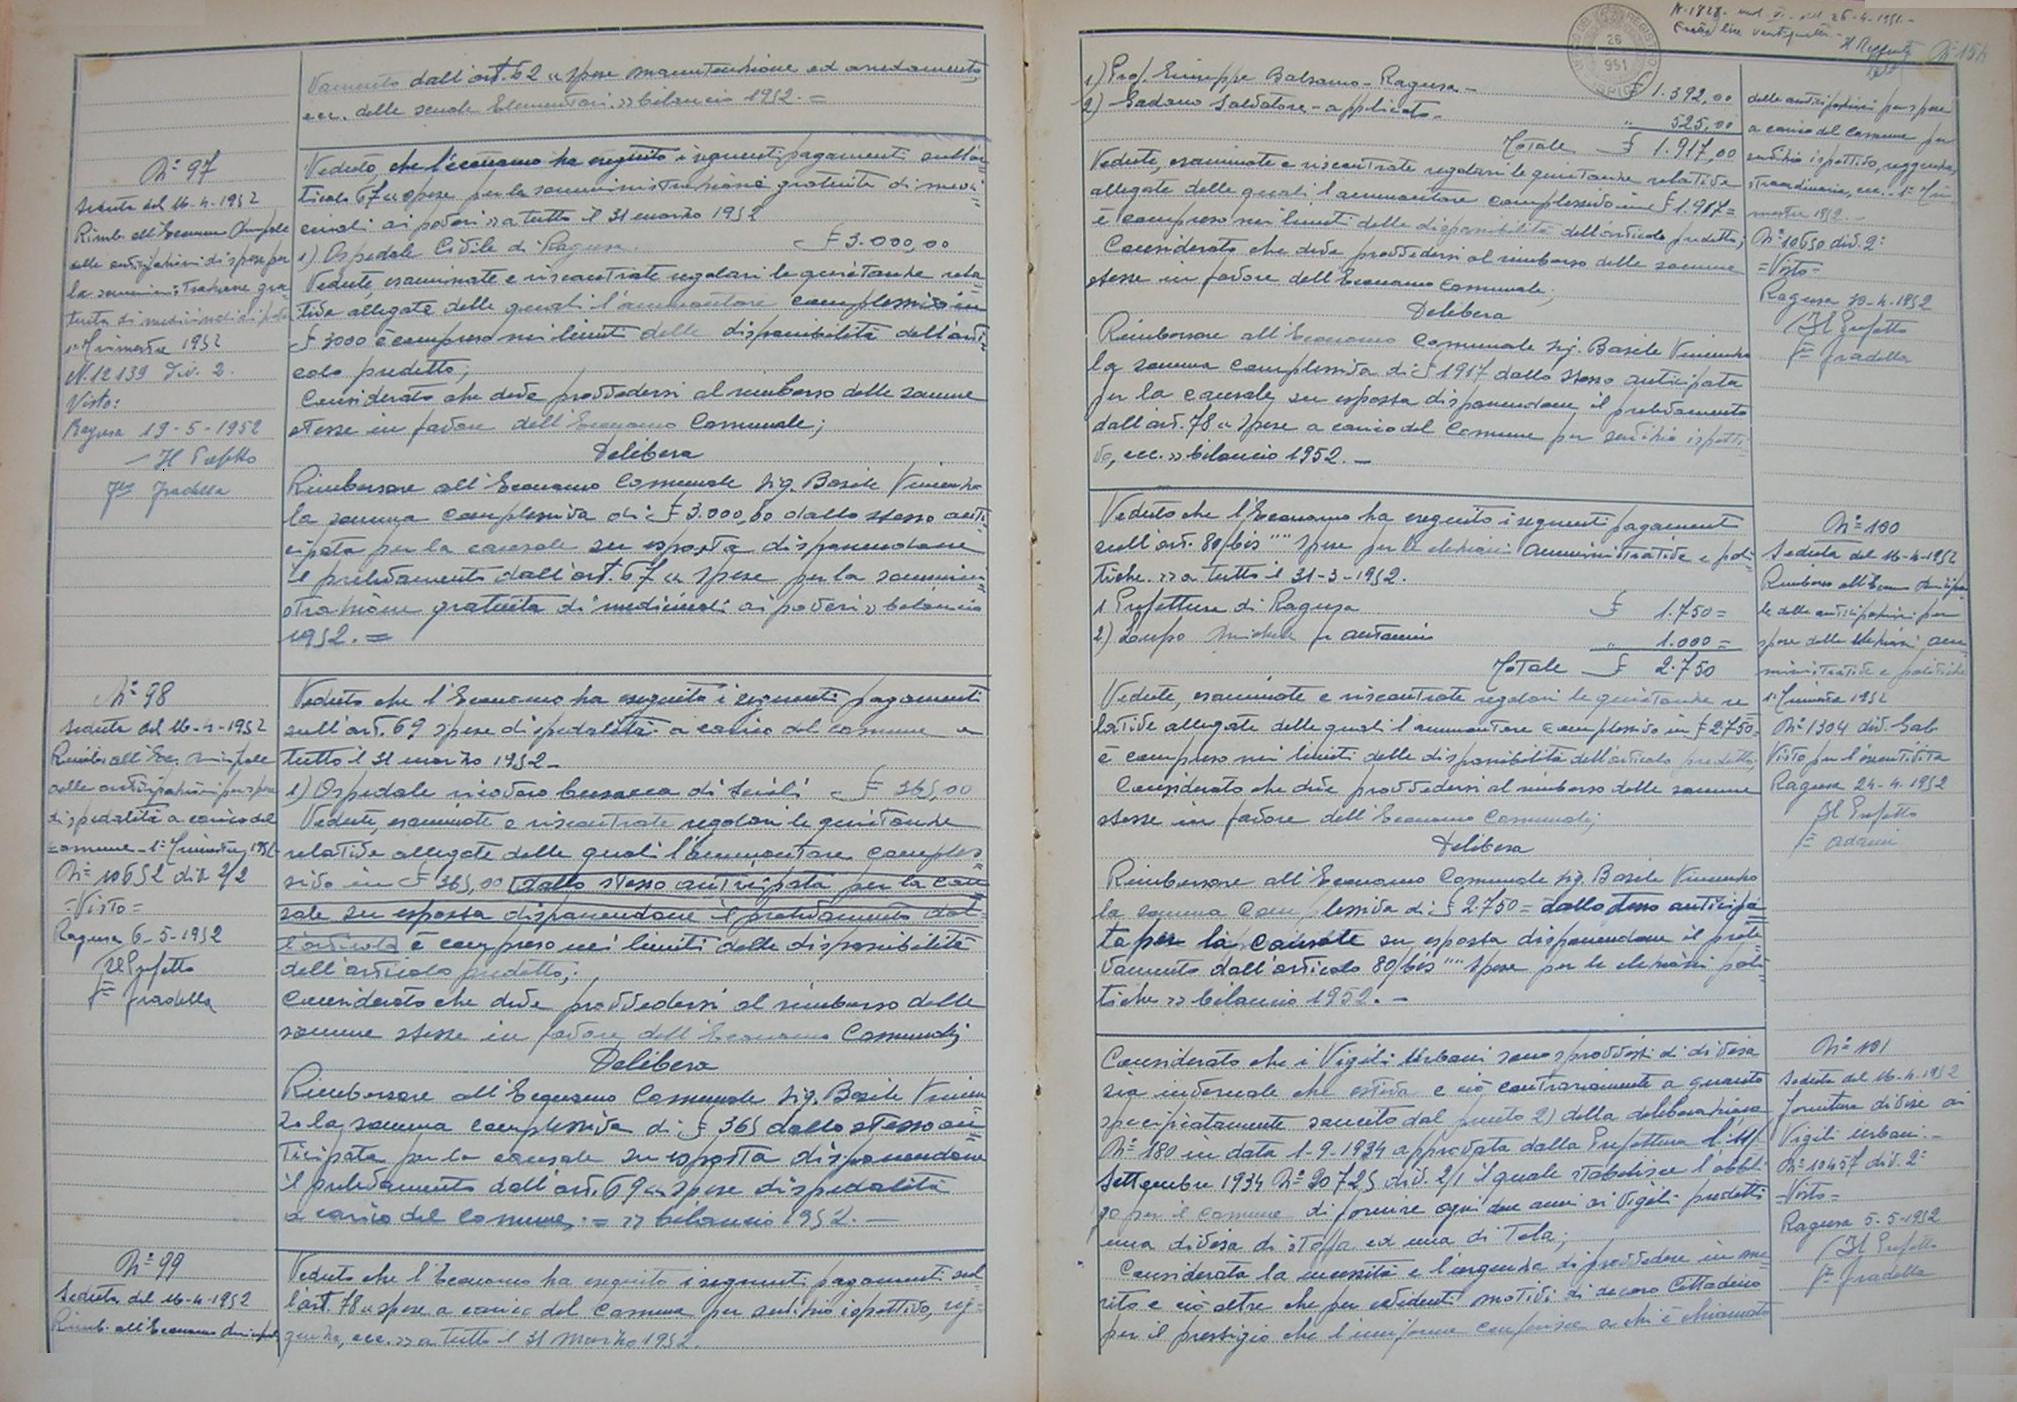 vamento dall'art. 62 "spese manutenzione ed arredamento,
ecc. delle scuole Elementari" bilancio 1952. =
N° 97
Seduta del 16-4-1952
Rimb. all'Economo Municipale
delle anticipazioni di spese per
la somministrazione gra-
tuita di medicinali ai poveri
1° Trimestre 1952
N. 12139 Div. 2.
Visto:
Ragusa 19-5-1952
Il Prefetto
Fto Gradella
Veduto, che l'economo ha eseguito i seguenti pagamenti sull'ar-
ticolo 67 "spese per la somministrazione gratuita di medi-
cinali ai poveri" a tutto il 31 marzo 1952
1) Ospedale Civile di Ragusa. £ 3.000,00
Vedute, esaminate e riscontrate regolari le quietanze rela-
tive allegate delle quali l'ammontare complessivo in
£ 3000 è compreso nei limiti delle disponibilità dell'arti-
colo predetto;
Considerato che deve provvedersi al rimborso delle somme
stesse in favore dell'Economo Comunale;
Delibera
Rimborsare all'Economo Comunale Sig. Basile Vincenzo
la somma complessiva di £ 3.000,00 dallo stesso anti-
cipata per la causale su esposta disponendone
il prelevamento dall'art. 67 "spese per la sommini-
strazione gratuita di medicinali ai poveri" bilancio
1952. =
N° 98
Seduta del 16-4-1952
Rimbor. all'Ec. Municipale
delle anticipazioni per spese
di spedalità a carico del
comune - 1° Trimestre 1952
N° 10652 div. 2/2
= Visto =
Ragusa 6-5-1952
Il Prefetto
Fto Gradella
Veduto che l'Economo ha eseguito i seguenti pagamenti
sull'art. 69 spese di spedalità a carico del comune a
tutto il 31 marzo 1952 -
1) Ospedale ricovero Busacca di Scicli - £ 365,00
Vedute, esaminate e riscontrate regolari le quietanze
relative allegate delle quali l'ammontare comples-
sivo in £ 365,00 dallo stesso anticipata per la cau-
sale su esposta disponendone il prelevamento dal-
l'articolo è compreso nei limiti delle disponibilità
dell'articolo predetto;
Considerato che deve provvedersi al rimborso delle
somme stesse in favore dell'Economo Comunale;
Delibera
Rimborsare all'Economo Comunale Sig. Basile Vincen-
zo la somma complessiva di £ 365 dallo stesso an-
ticipata per la causale su esposta disponendone
il prelevamento dall'art. 69 "spese di spedalità
a carico del comune. =" bilancio 1952. -
N° 99
Seduta del 16-4-1952
Rimb. all'Economo Municipale
Veduto che l'Economo ha eseguito i seguenti pagamenti sul-
l'art. 78 "spese a carico del Comune per servizio ispettivo, reg-
genze, ecc." a tutto il 31 Marzo 1952.
26
951
N° 154
1) Prof. Giuseppe Balsamo - Ragusa - £ 1.392,00
2) Gadano Salvatore - applicato - " 525,00
Totale £ 1.917,00
Vedute, esaminate e riscontrate regolari le quietanze relative
allegate delle quali l'ammontare complessivo in £ 1.917=
è compreso nei limiti delle disponibilità dell'articolo predetto;
Considerato che deve provvedersi al rimborso delle somme
stesse in favore dell'Economo Comunale;
Delibera
Rimborsare all'Economo Comunale Sig. Basile Vincenzo
la somma complessiva di £ 1917 dallo stesso anticipata
per la causale su esposta disponendone il prelevamento
dall'art. 78 "spese a carico del Comune per servizio ispetti-
vo, ecc." bilancio 1952. -
delle anticipazioni per spese
a carico del Comune per
servizio ispettivo, reggenze,
straordinarie, ecc. 1° Tri-
mestre 1952. -
N° 10650 div. 2°
= Visto =
Ragusa 30-4-1952
Il Prefetto
Fto Gradella
Veduto che l'Economo ha eseguito i seguenti pagamenti
sull'art. 80/bis "" spese per le elezioni Amministrative e poli-
tiche. " a tutto il 31-3-1952.
1 Prefettura di Ragusa £ 1.750 =
2) Lupo Michele fu Antonio " 1.000 =
Totale £ 2.750
Vedute, esaminate e riscontrate regolari le quietanze re-
lative allegate delle quali l'ammontare complessivo in £ 2750=
è compreso nei limiti delle disponibilità dell'articolo predetto;
Considerato che deve provvedersi al rimborso delle somme
stesse in favore dell'Economo Comunale;
Delibera
Rimborsare all'Economo Comunale Sig. Basile Vincenzo
la somma complessiva di £ 2.750 = dallo stesso anticipa-
ta per la causale su esposta disponendone il prele-
vamento dall'articolo 80/bis "" spese per le elezioni poli-
tiche" bilancio 1952. -
N° 100
Seduta del 16-4-1952
Rimborso all'Economo Municipa-
le delle anticipazioni per
spese delle elezioni am-
ministrative e politiche
1° Trimestre 1952
N° 1304 div. Gab.
Visto per l'esecutività
Ragusa 24-4-1952
Il Prefetto
Fto Adami
Considerato che i Vigili Urbani sono sprovvisti di divisa
sia invernale che estiva e ciò contrariamente a quanto
specificatamente sancito dal punto 2) della deliberazione
N° 180 in data 1-9-1934 approvata dalla Prefettura l'11
Settembre 1934 N° 20725 div. 2/1 il quale stabilisce l'obbli-
go per il comune di fornire ogni due anni ai Vigili predetti
una divisa di stoffa ed una di Tela;
Considerata la necessità e l'urgenza di provvedere in me-
rito e ciò oltre che per evidenti motivi di decoro cittadino
per il prestigio che l'uniforme conferisce a chi è chiamato
N° 101
Seduta del 16-4-1952
Fornitura divise ai
Vigili urbani. -
N° 10457 div. 2°
= Visto =
Ragusa 5-5-1952
Il Prefetto
Fto Gradella